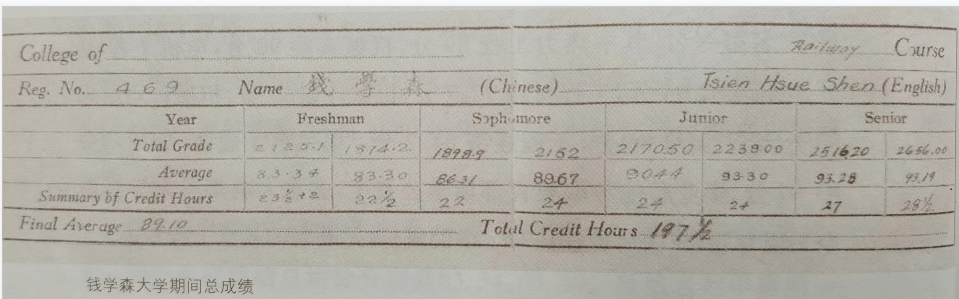 College of Railway Course
Reg. No. 469 Name 錢學森 (Chinese) Tsien Hsue Shen (English)
Year Freshman Sophomore Junior Senior
Total Grade 2125.1 1874.2 1898.9 2152 2170.50 2239.00 2516.20 2656.00
Average 83.34 83.30 86.31 89.67 90.44 93.30 93.28 93.19
Summary of Credit Hours 22½ 22 24 24 24 27 28½
Final Average 89.10 Total Credit Hours 197½
钱学森大学期间总成绩